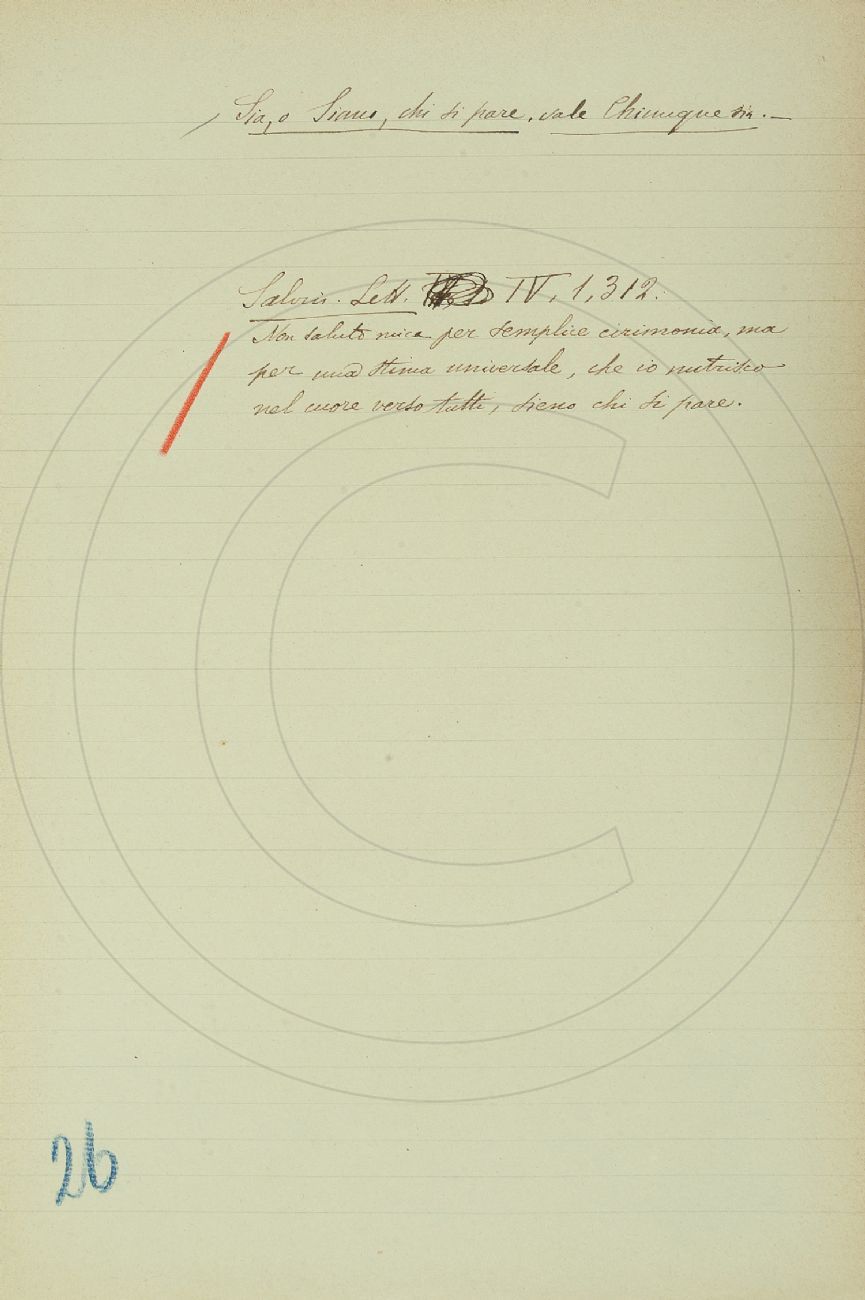 Sia, o Siano, chi si pare, vale Chiunque sia. —
Salvin. Lett. IV, 1, 312.
Non saluto mica per semplice cirimonia, ma
per una stima universale, che io nutrisco
nel cuore verso tutti, sieno chi si pare.
26